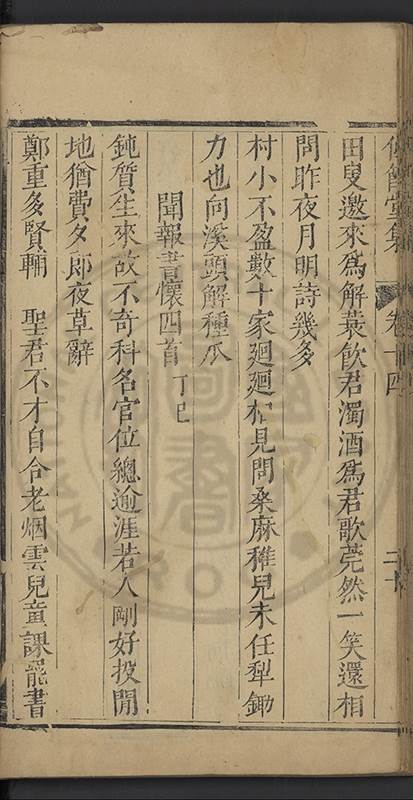 堂集 卷十四
田叟邀來為解蓑飲君濁酒為君歌莞然一笑還相
問昨夜月明詩幾多
村小不盈數十家廻廻相見問桑麻稚兒未任犁鋤
力也向溪頭解種瓜
聞報書懷四首丁巳
鈍質生來故不奇科名官位總逾涯若人剛好投閒
地猶費夕郎夜草辭
鄭重多賢輔 聖君不才自合老烟雲兒童課罷書